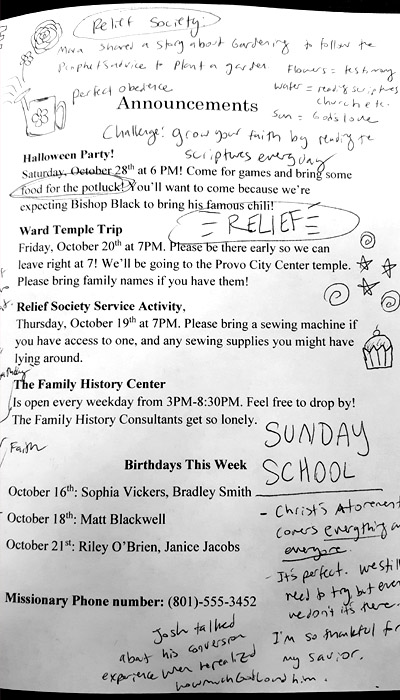 Relief Society:
Mora shared a story about Gardening to follow the
Prophet's advice to plant a garden
perfect obedience
Flowers = testimony
water = reading scriptures
church etc.
Sun = God's love
Announcements
Challenge: grow your faith by reading the
scriptures everyday
Halloween Party!
Saturday, October 28th at 6 PM! Come for games and bring some
food for the potluck! You'll want to come because we're
expecting Bishop Black to bring his famous chili!
RELIEF
Ward Temple Trip
Friday, October 20th at 7PM. Please be there early so we can
leave right at 7! We'll be going to the Provo City Center temple.
Please bring family names if you have them!
Relief Society Service Activity,
Thursday, October 19th at 7PM. Please bring a sewing machine if
you have access to one, and any sewing supplies you might have
lying around.
The Family History Center
Is open every weekday from 3PM-8:30PM. Feel free to drop by!
The Family History Consultants get so lonely.
Faith
Birthdays This Week
October 16th: Sophia Vickers, Bradley Smith
October 18th: Matt Blackwell
October 21st: Riley O'Brien, Janice Jacobs
Missionary Phone number: (801)-555-3452
SUNDAY
SCHOOL
- Christ's Atonement
covers everything
everyone.
- It's perfect. We still
need to try but even
we don't it's there.
I'm so thankful for
my Savior.
Josh talked
about his conversion
experience when he realized
how much God loved him.